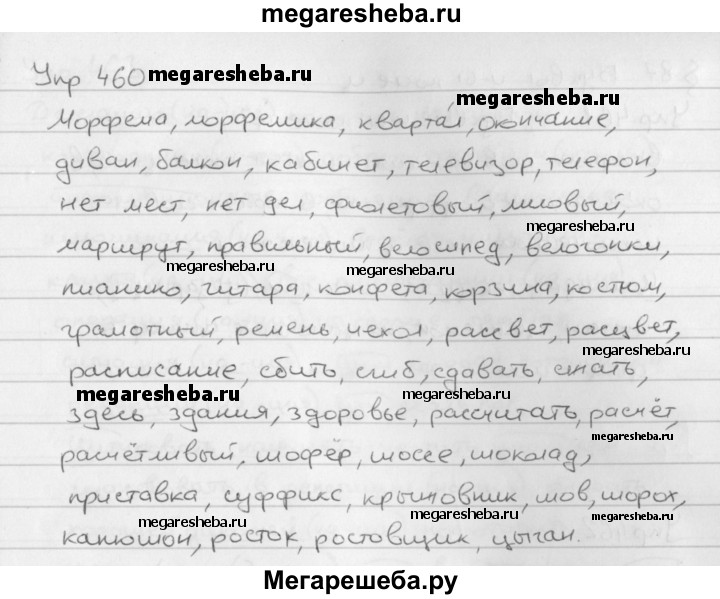 megaresheba.ru
Упр 460 megaresheba.ru
megaresheba.ru
Морфема, морфемика, квартал, окончание,
диван, балкон, кабинет, телевизор, телефон,
нет мест, нет дел, фиолетовый, лиловый,
megaresheba.ru
маршрут, правильный, велосипед, велогонки,
megaresheba.ru megaresheba.ru
пианино, гитара, конфета, корзина, костюм,
грамотный, ремень, чехол, рассвет, расцвет,
megaresheba.ru
расписание, сбить, сгиб, сдавать, сжать,
megaresheba.ru megaresheba.ru
здесь, здания, здоровье, рассчитать, расчёт,
megaresheba.ru
расчётливый, шофёр, шоссе, шоколад,
приставка, суффикс, крыжовник, шов, шорох,
megaresheba.ru megaresheba.ru megaresheba.ru
капюшон, росток, ростовщик, цыган.
Мегарешеба.ру